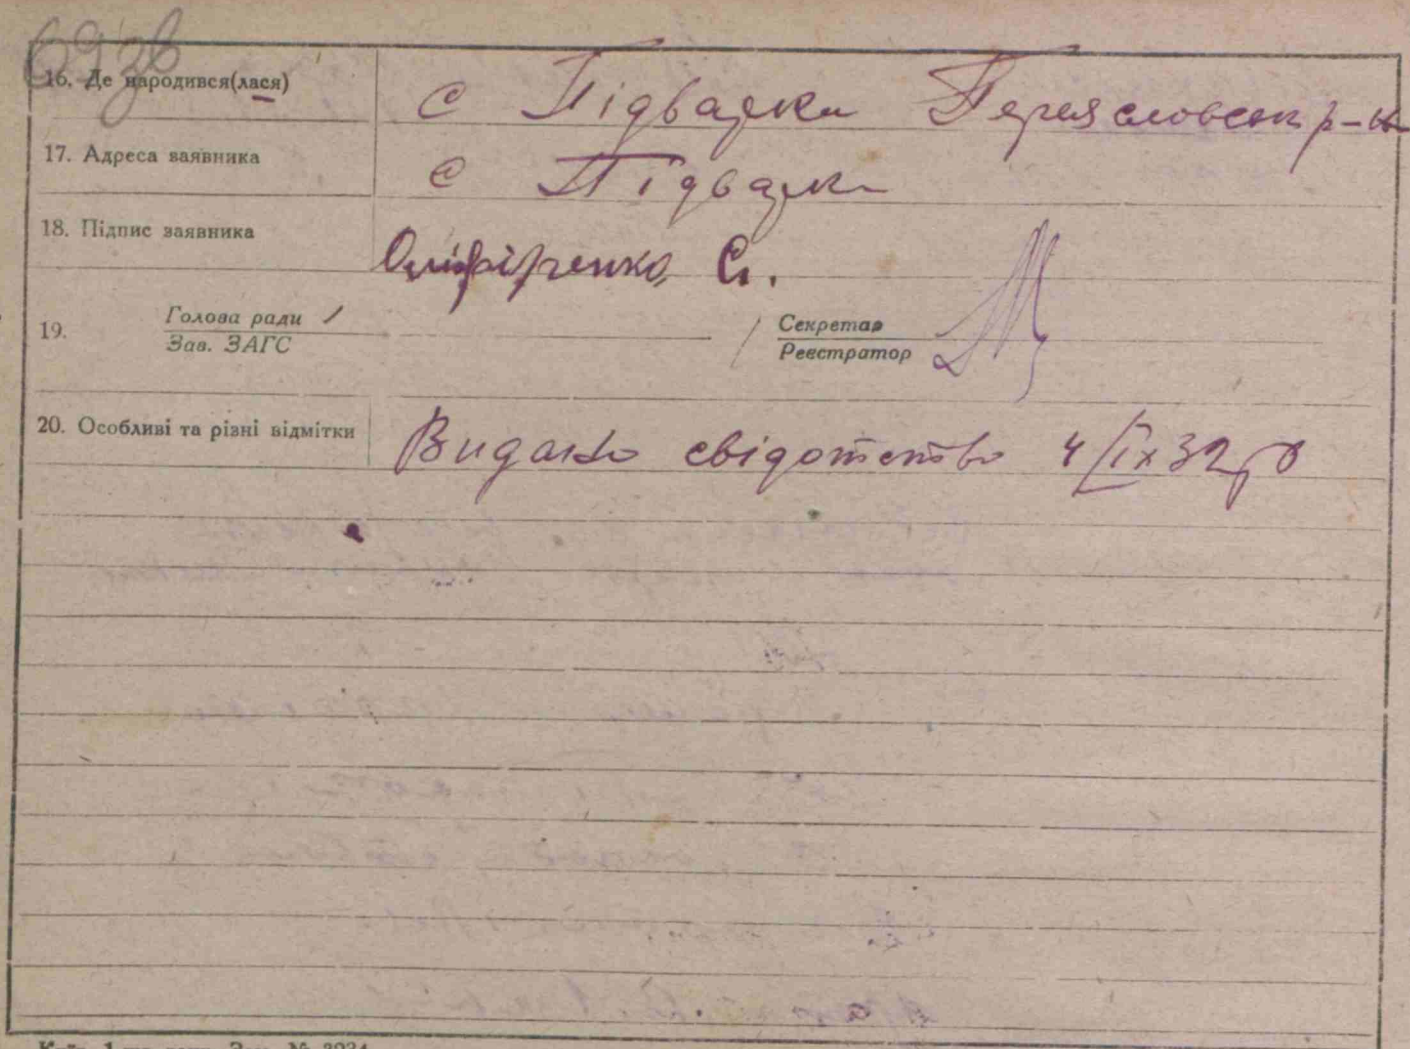 69зв
16. Де народився(лася) с Підварки Переясловськ р-н
17. Адреса заявника с Підварки
18. Підпис заявника Оліфіренко С.
19. Голова ради Секретар
Зав. ЗАГС Реєстратор
20. Особливі та різні відмітки Видано свідотство 4/ІХ 32 р